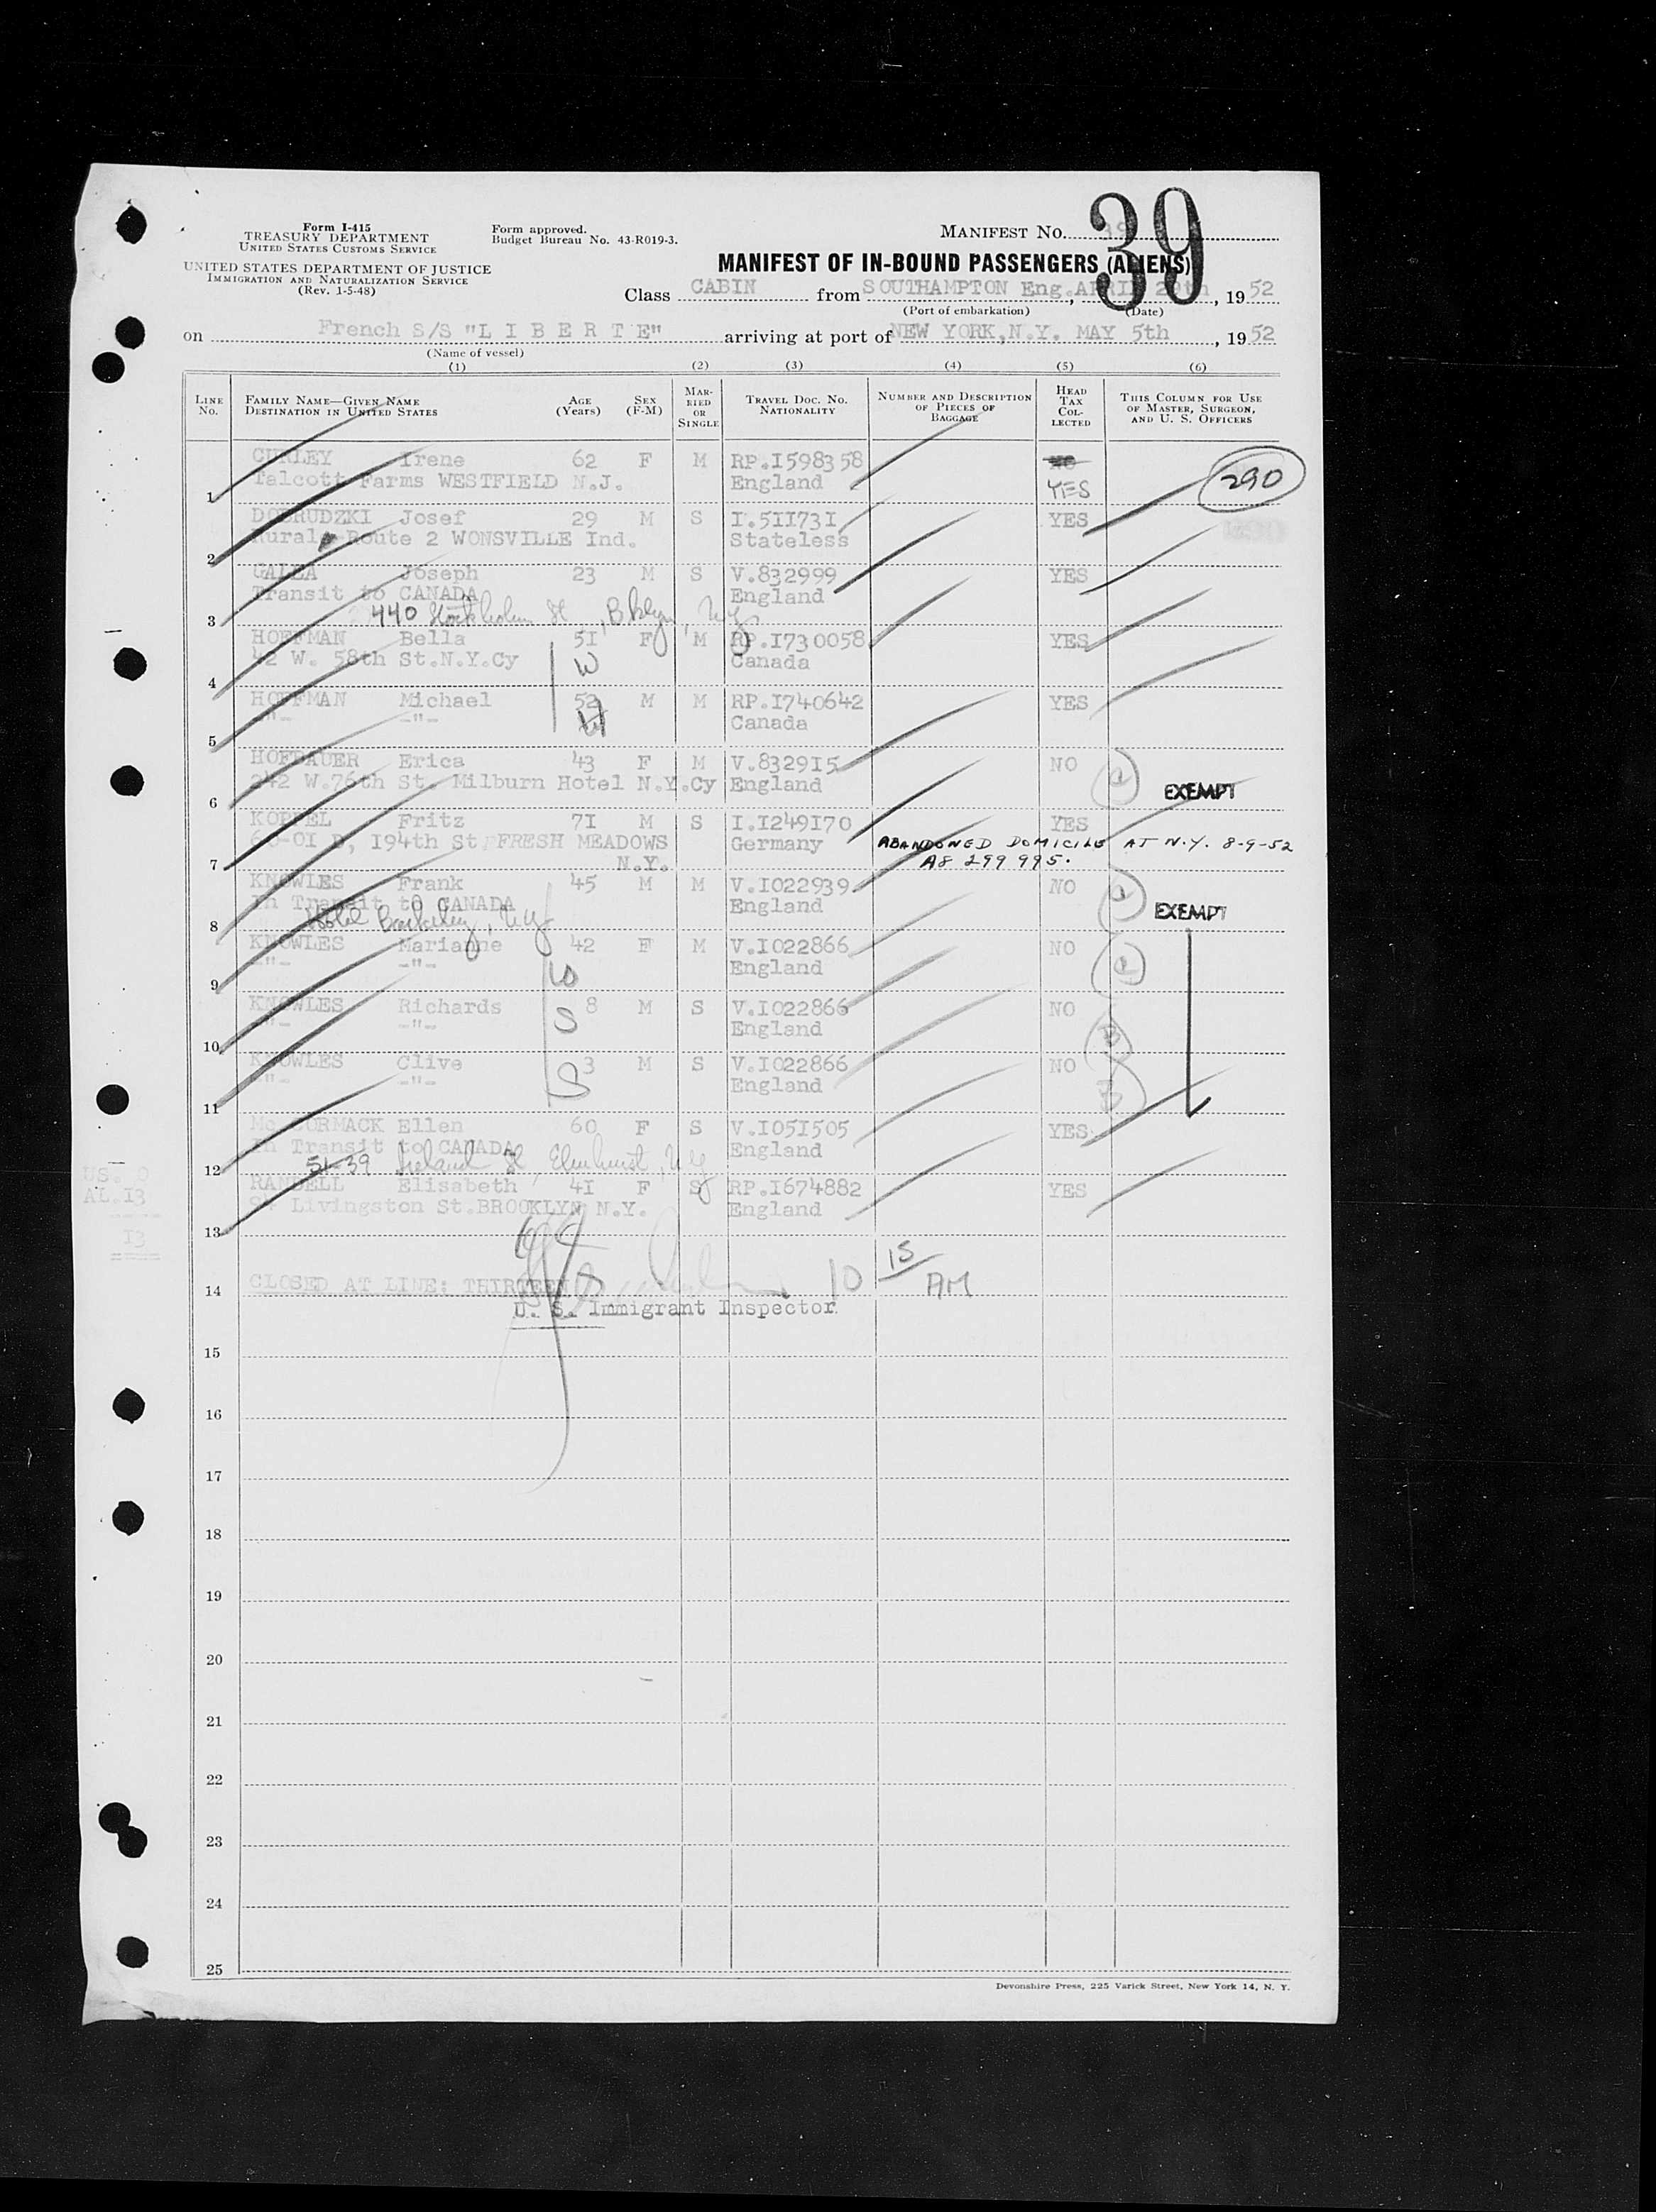 Form I-415
TREASURY DEPARTMENT
UNITED STATES CUSTOMS SERVICE
UNITED STATES DEPARTMENT OF JUSTICE
IMMIGRATION AND NATURALIZATION SERVICE
(Rev. 1-5-48)
Form approved.
Budget Bureau No. 43-R019-3.
MANIFEST No. 39
MANIFEST OF IN-BOUND PASSENGERS (ALIENS)
Class CABIN from SOUTHAMPTON Eng. APRIL 29th, 1952
(Port of embarkation) (Date)
on French S/S "L I B E R T E" arriving at port of NEW YORK, N.Y. MAY 5th, 1952
(Name of vessel)
(1) (2) (3) (4) (5) (6)
LINE No. FAMILY NAME—GIVEN NAME DESTINATION IN UNITED STATES AGE (Years) SEX (F-M) MARRIED OR SINGLE TRAVEL DOC. NO. NATIONALITY NUMBER AND DESCRIPTION OF PIECES OF BAGGAGE HEAD TAX COLLECTED THIS COLUMN FOR USE OF MASTER, SURGEON, AND U. S. OFFICERS
CURLEY Irene 62 F M RP.I598358 NO 290
Talcott Farms WESTFIELD N.J. England YES
1
DOBRUDZKI Josef 29 M S I.5II73I YES
Rural Route 2 WONSVILLE Ind. Stateless
2
GALEA Joseph 23 M S V.832999 YES
Transit to CANADA England
3 440 Stockholm St, Bklyn, NY
HOFFMAN Bella 5I F M RP.I730058 YES
42 W. 58th St.N.Y.Cy W Canada
4
HOFFMAN Michael 52 M M RP.I740642 YES
-"- -"- H Canada
5
HOFBAUER Erica 43 F M V.832915 NO
242 W.76th St. Milburn Hotel N.Y.Cy England EXEMPT
6
KOPPEL Fritz 7I M S I.I249I70 YES
194th St. FRESH MEADOWS Germany ABANDONED DOMICILE AT N.Y. 8-9-52
7 N.Y. A8 299 995.
KNOWLES Frank 45 M M V.I022939 NO
In Transit to CANADA England EXEMPT
8 Hotel Barkeley, NY
KNOWLES Marianne 42 F M V.I022866 NO
-"- -"- W England
9
KNOWLES Richards 8 M S V.I022866 NO
-"- -"- S England
10
KNOWLES Clive 3 M S V.I022866 NO
-"- -"- S England
11
Mc CORMACK Ellen 60 F S V.I05I505 YES
In Transit to CANADA England
12 51-39 Ireland St, Elmhurst, NY
RANDELL Elisabeth 4I F S RP.I674882 YES
Livingston St.BROOKLYN N.Y. England
13
US. 0
AL.I3
I3
14 CLOSED AT LINE: THIRTEEN 10 15 AM
U. S. Immigrant Inspector
15
16
17
18
19
20
21
22
23
24
25
Devonshire Press, 225 Varick Street, New York 14, N. Y.